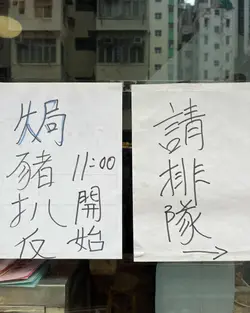 焗豬扒反
11:00 開始
請排隊
→